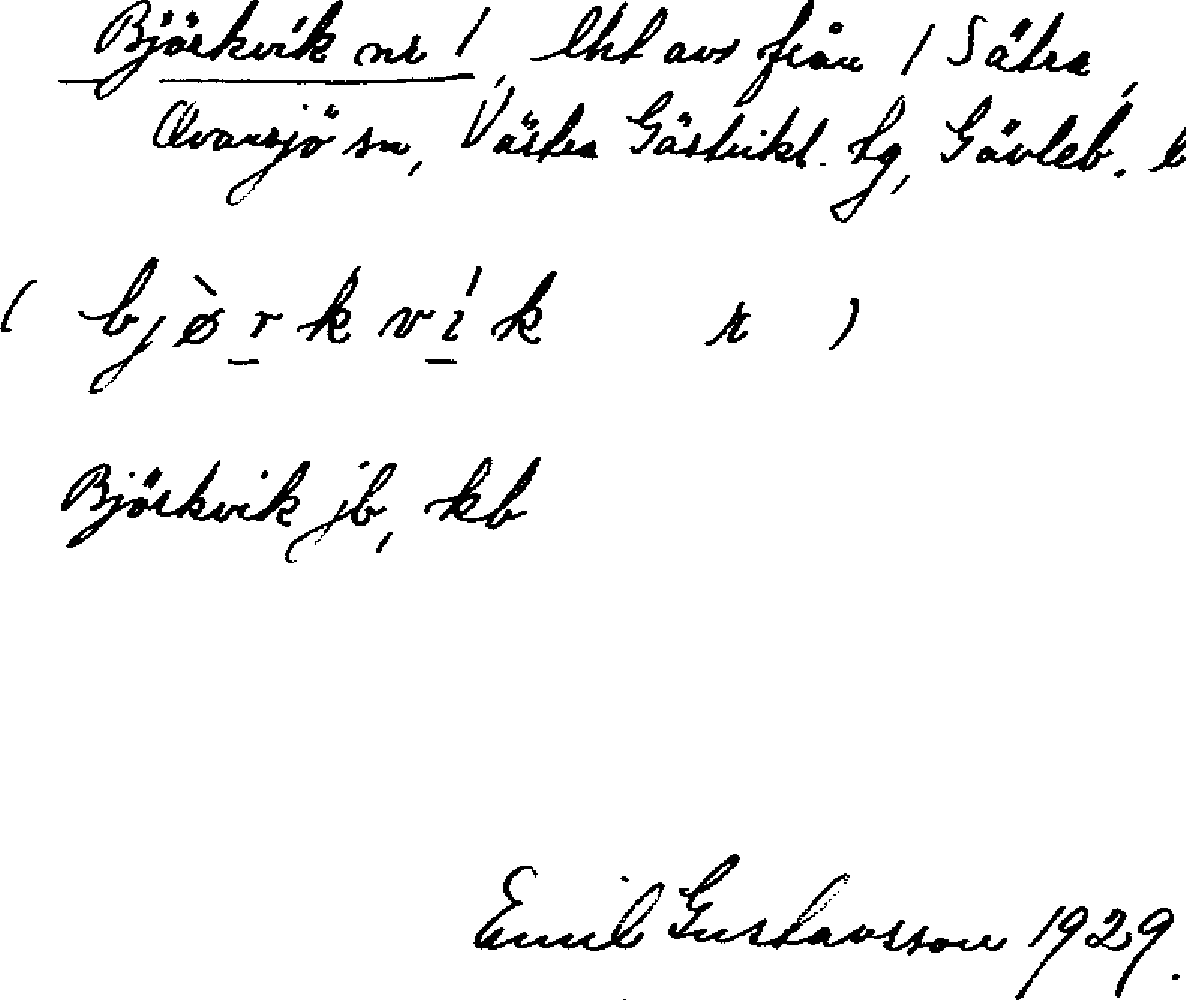 Björkvik nr 1, lht avs från 1 Sätra,
Ovansjö sn, Västra Gästrikl. tg, Gävleb. l
( bjø̀rkvík r )
Björkvik jb, kb
Emil Gustavsson 1929.